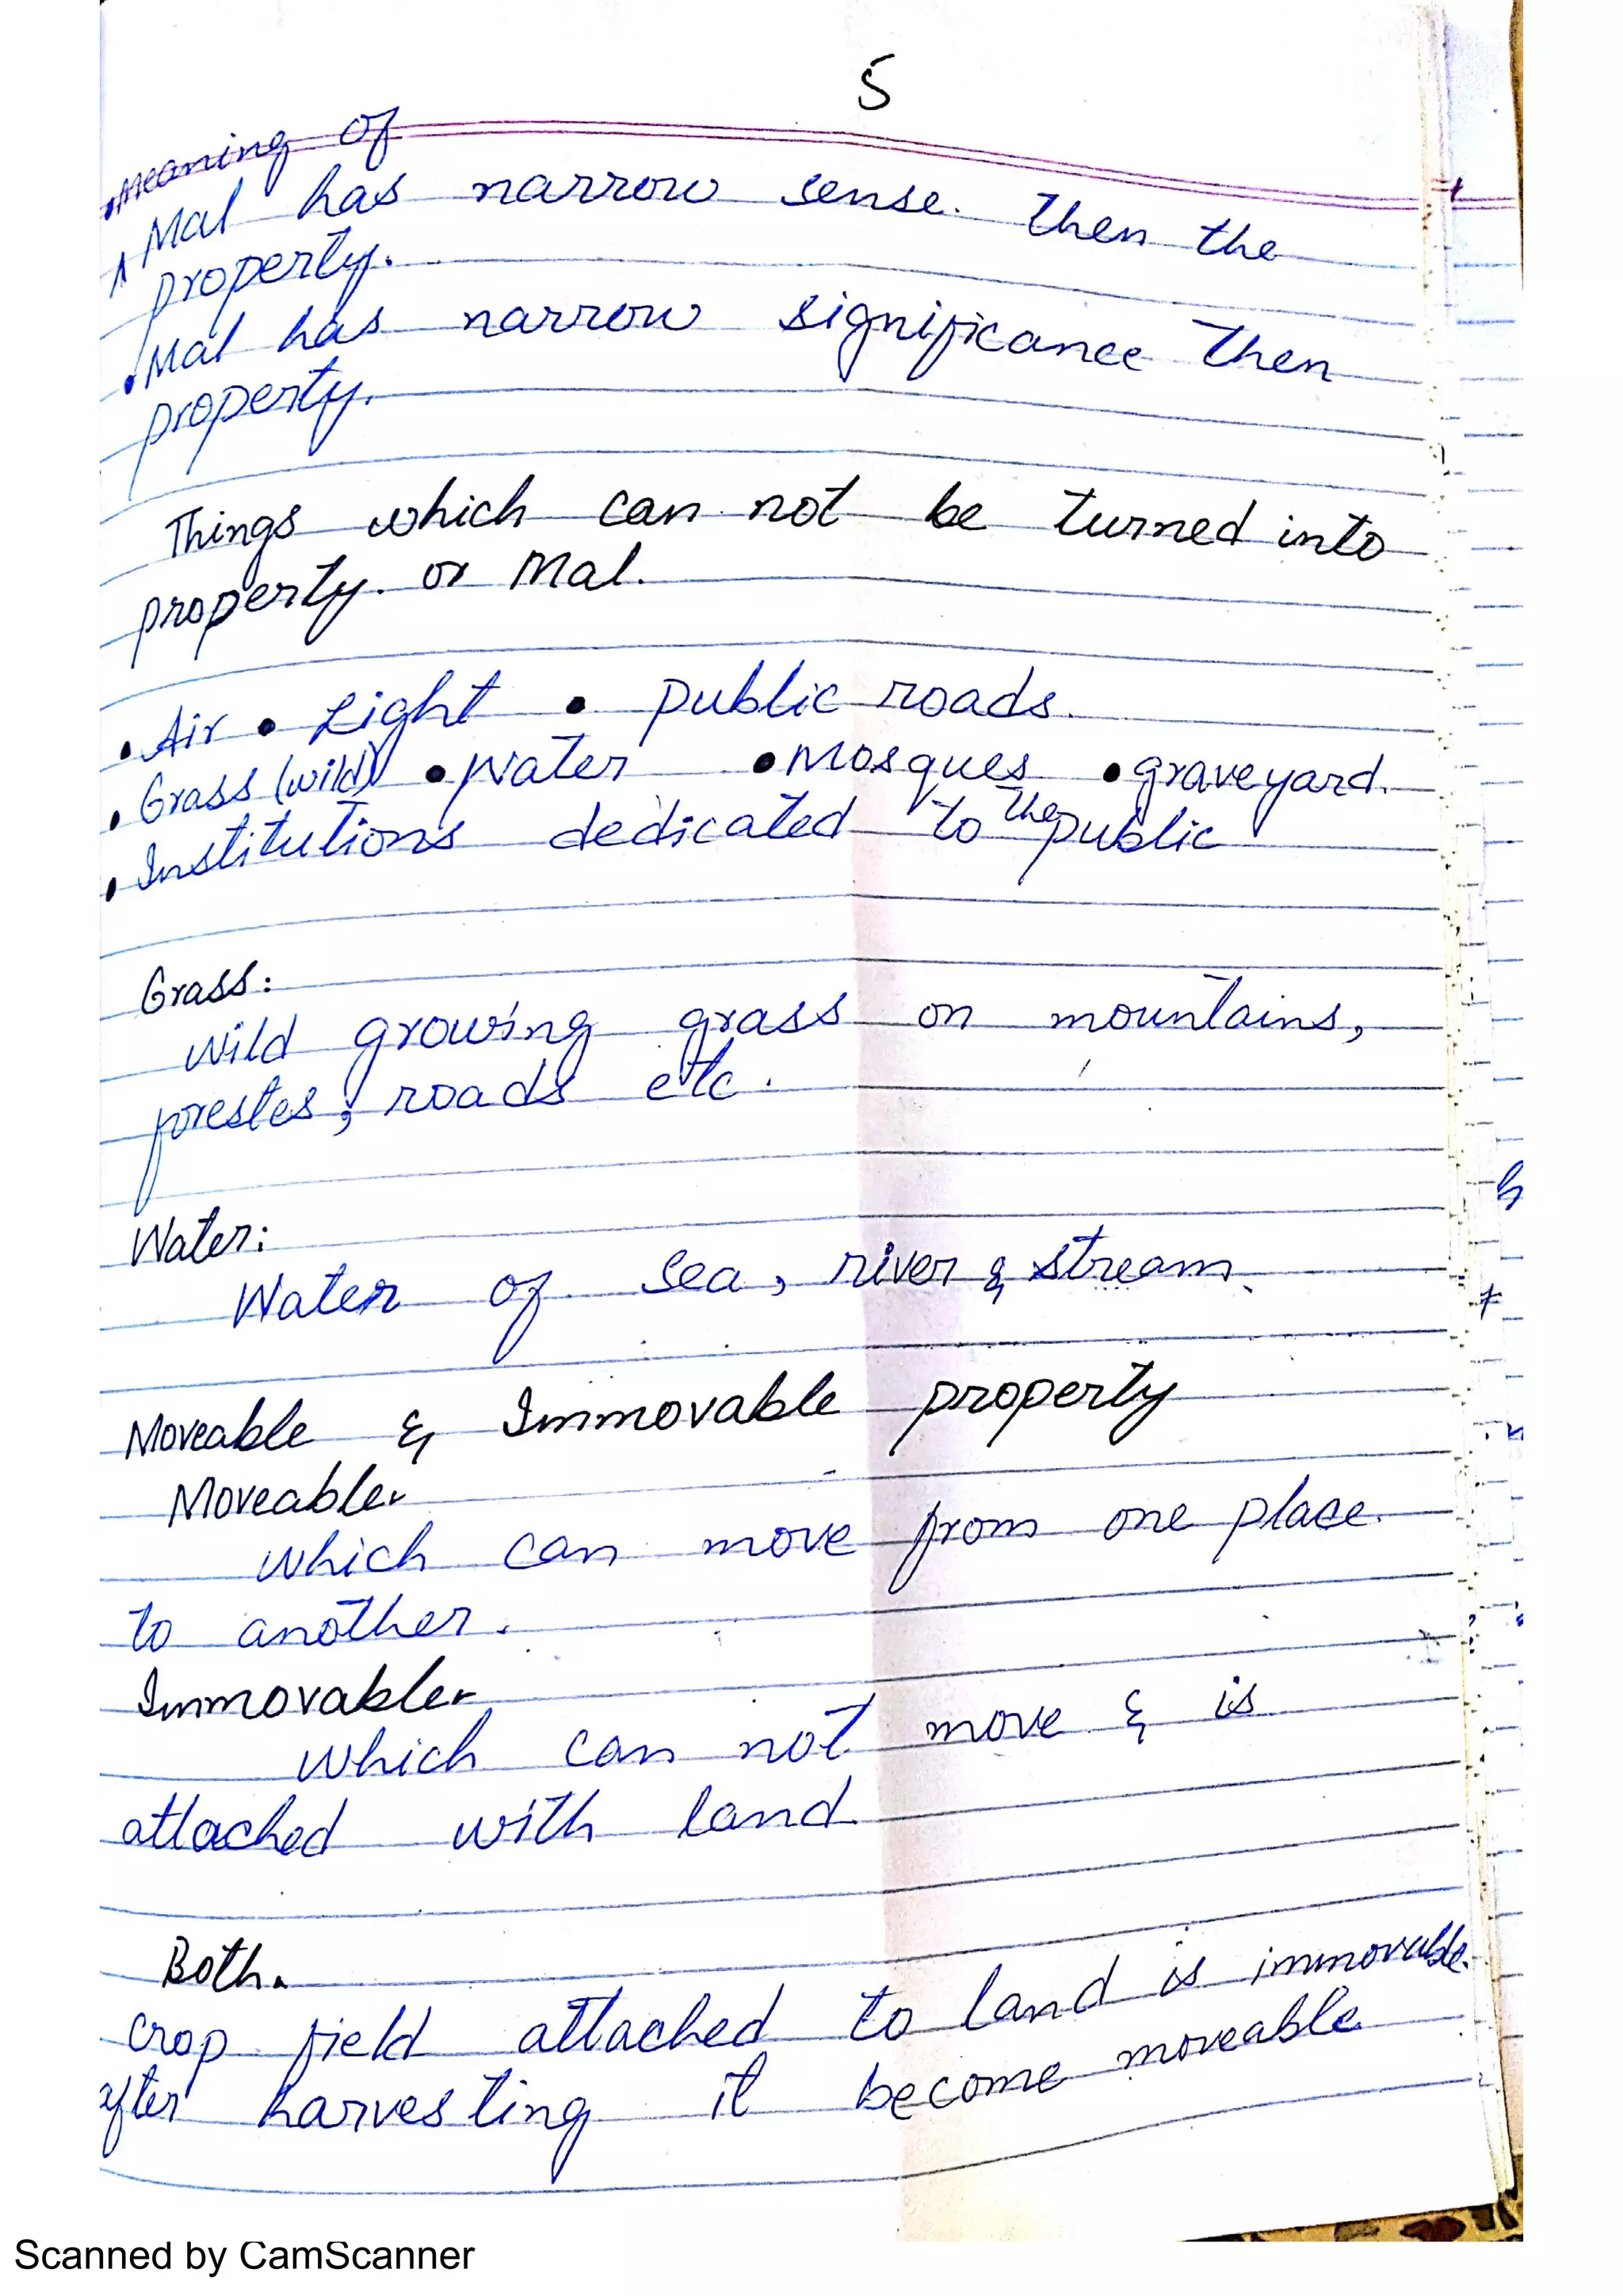 5
Meaning of
Mal has narrow sense. then the
property.
• Mal has narrow significance then
property.
Things which can not be turned into
property. or Mal.
• Air • Light • public roads.
• Grass (wild) • Water • Mosques • graveyard.
• Institutions dedicated to the public
Grass:
wild growing grass on mountains,
forestes, roads etc.
Water:
Water of sea, river & stream.
Moveable & Immovable property
Moveable-
which can move from one place
to another.
Immovable-
which can not move & is
attached with land
Both.
crop field attached to land is immovable.
after harvesting it become moveable
Scanned by CamScanner